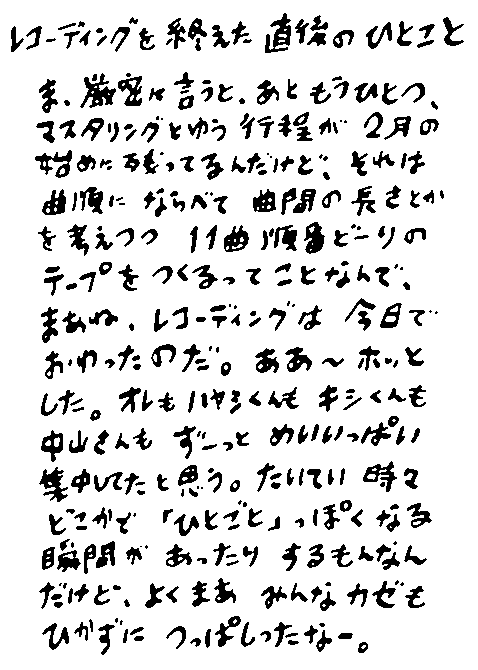 レコーディングを終えた直後のひとこと
ま、厳密に言うと、あともうひとつ、
マスタリングとゆう行程が2月の
始めに残ってるんだけど、それは
曲順にならべて曲間の長さとか
を考えつつ11曲順番どーりの
テープをつくるってことなんで、
まあね、レコーディングは今日で
おわったのだ。ああ〜ホッと
した。オレもハヤシくんもキシくんも
中山さんもずーっとめいいっぱい
集中してたと思う。たいてい時々
どこかで「ひとごと」っぽくなる
瞬間があったりするもんなん
だけど、よくまあみんなカゼも
ひかずにつっぱしったなー。